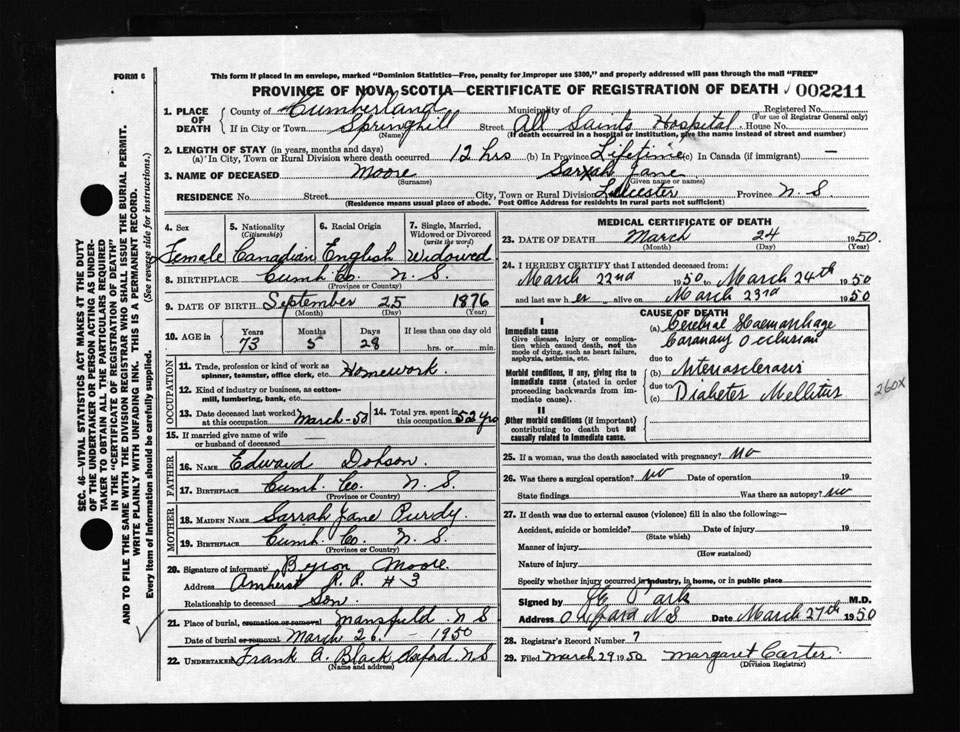 FORM 6
This form if placed in an envelope, marked "Dominion Statistics—Free, penalty for improper use $300," and properly addressed will pass through the mail "FREE"
PROVINCE OF NOVA SCOTIA—CERTIFICATE OF REGISTRATION OF DEATH 002211
1. PLACE OF DEATH County of Cumberland Municipality of Registered No.
(For use of Registrar General only)
If in City or Town Springhill Street All Saints Hospital House No.
(Name) (If death occurred in a hospital or institution, give the name instead of street and number)
2. LENGTH OF STAY (in years, months and days)
(a) In City, Town or Rural Division where death occurred 12 hrs (b) In Province Lifetime (c) In Canada (if immigrant) —
3. NAME OF DECEASED Moore Sarrah Jane
(Surname) (Given name or names)
RESIDENCE No. Street City, Town or Rural Division Leicester Province N.S.
(Residence means usual place of abode. Post Office Address for residents in rural parts not sufficient)
4. Sex 5. Nationality (Citizenship) 6. Racial Origin 7. Single, Married, Widowed or Divorced (write the word)
Female Canadian English Widowed
8. BIRTHPLACE Cumb. Co. N.S.
(Province or Country)
9. DATE OF BIRTH September 25 1876
(Month) (Day) (Year)
10. AGE in Years Months Days If less than one day old
73 5 28 hrs. or min.
OCCUPATION
11. Trade, profession or kind of work as spinner, teamster, office clerk, etc. Homework.
12. Kind of industry or business, as cotton-mill, lumbering, bank, etc.
13. Date deceased last worked at this occupation March-50 14. Total yrs. spent in this occupation 52 yrs
15. If married give name of wife or husband of deceased
FATHER
16. NAME Edward Dobson.
17. BIRTHPLACE Cumb. Co. N.S.
(Province or Country)
MOTHER
18. MAIDEN NAME Sarrah Jane Purdy.
19. BIRTHPLACE Cumb. Co. N.S.
(Province or Country)
20. Signature of informant Byron Moore.
Address Amherst R.R. #3
Relationship to deceased Son.
21. Place of burial, cremation or removal Mansfield N S
Date of burial or removal March 26. - 1950
22. UNDERTAKER Frank A. Black Oxford. N.S
(Name and address)
MEDICAL CERTIFICATE OF DEATH
23. DATE OF DEATH March 24 1950.
(Month) (Day) (Year)
24. I HEREBY CERTIFY that I attended deceased from:
March 22nd 1950 to March 24th 1950
and last saw her alive on March 23rd 1950
CAUSE OF DEATH
I
Immediate cause
Give disease, injury or complication which caused death, not the mode of dying, such as heart failure, asphyxia, asthenia, etc.
(a) Cerebral Haemorrhage
Coranary Occlusion
due to
Morbid conditions, if any, giving rise to immediate cause (stated in order proceeding backwards from immediate cause).
(b) Arteriosclerosis
due to
(c) Diabetes Mellitus
260X
II
Other morbid conditions (if important) contributing to death but not causally related to immediate cause.
25. If a woman, was the death associated with pregnancy? No
26. Was there a surgical operation? No Date of operation 19
State findings Was there an autopsy? No
27. If death was due to external causes (violence) fill in also the following:—
Accident, suicide or homicide? Date of injury 19
(State which)
Manner of injury
(How sustained)
Nature of injury
Specify whether injury occurred in industry, in home, or in public place
Signed by M.D.
Address Oxford N S Date March 27th 1950
28. Registrar's Record Number 7
29. Filed March 29 1950 Margaret Carter.
(Division Registrar)
SEC. 46—VITAL STATISTICS ACT MAKES IT THE DUTY
OF THE UNDERTAKER OR PERSON ACTING AS UNDER-
TAKER TO OBTAIN ALL THE PARTICULARS REQUIRED
IN THE "CERTIFICATE OF REGISTRATION OF DEATH"
AND TO FILE THE SAME WITH THE DIVISION REGISTRAR WHO SHALL ISSUE THE BURIAL PERMIT.
WRITE PLAINLY WITH UNFADING INK. THIS IS A PERMANENT RECORD.
Every item of information should be carefully supplied. (See reverse side for instructions.)